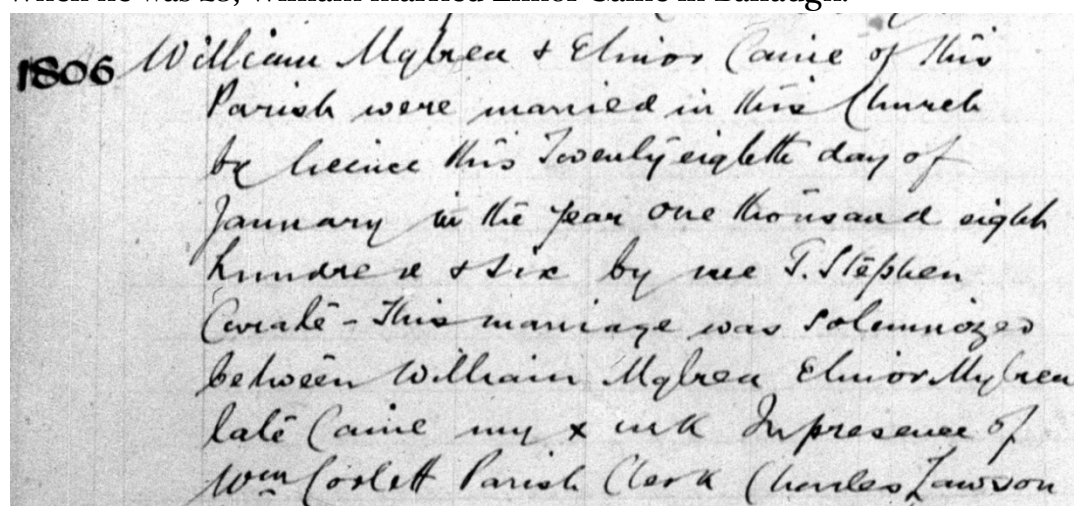 When he was 28, William married Elinor Caine in Ballaugh.
1806 William Mylrea & Elinor Caine of this
Parish were married in this Church
by licince this Twenty eighth day of
January in the year one thousand eight
hundred & six by me T. Stephen
Curate - This marriage was solemnized
between William Mylrea Elinor Mylrea
late Caine my x mrk In presence of
Wm Corlett Parish Clerk Charles Lawson